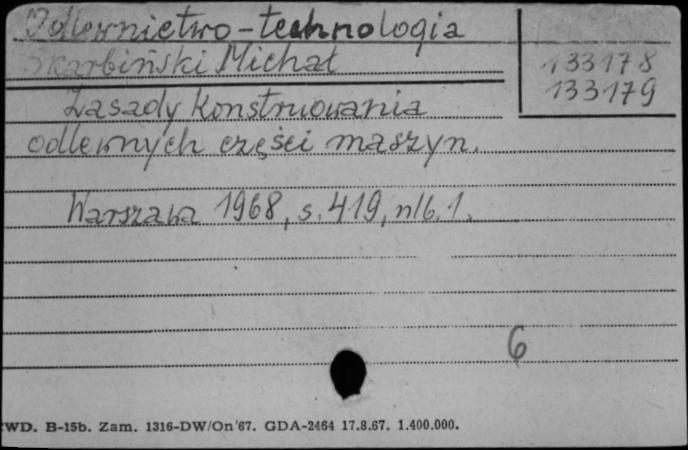 Odlewnictwo-technologia
Skarbiński Michał
133178
133179
Zasady konstruowania
odlewnych części maszyn.
Warszawa 1968, s. 419, nlb. 1.
6
WD. B-15b. Zam. 1316-DW/On'67. GDA-2464 17.8.67. 1.400.000.